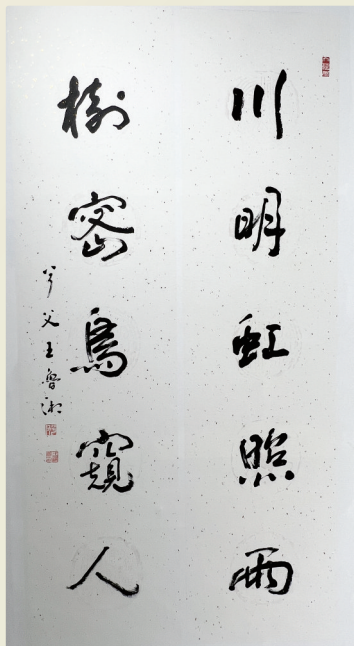 川明虹照雨
樹密鳥窺人
兮父王魯湘